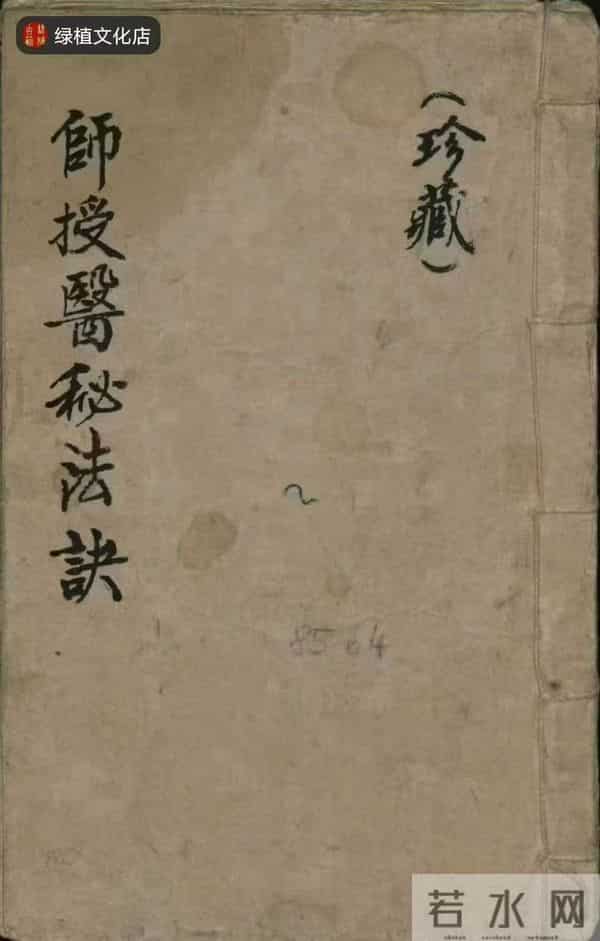 绿植文化店
（珍藏）
師授醫秘法訣
8504
若水网